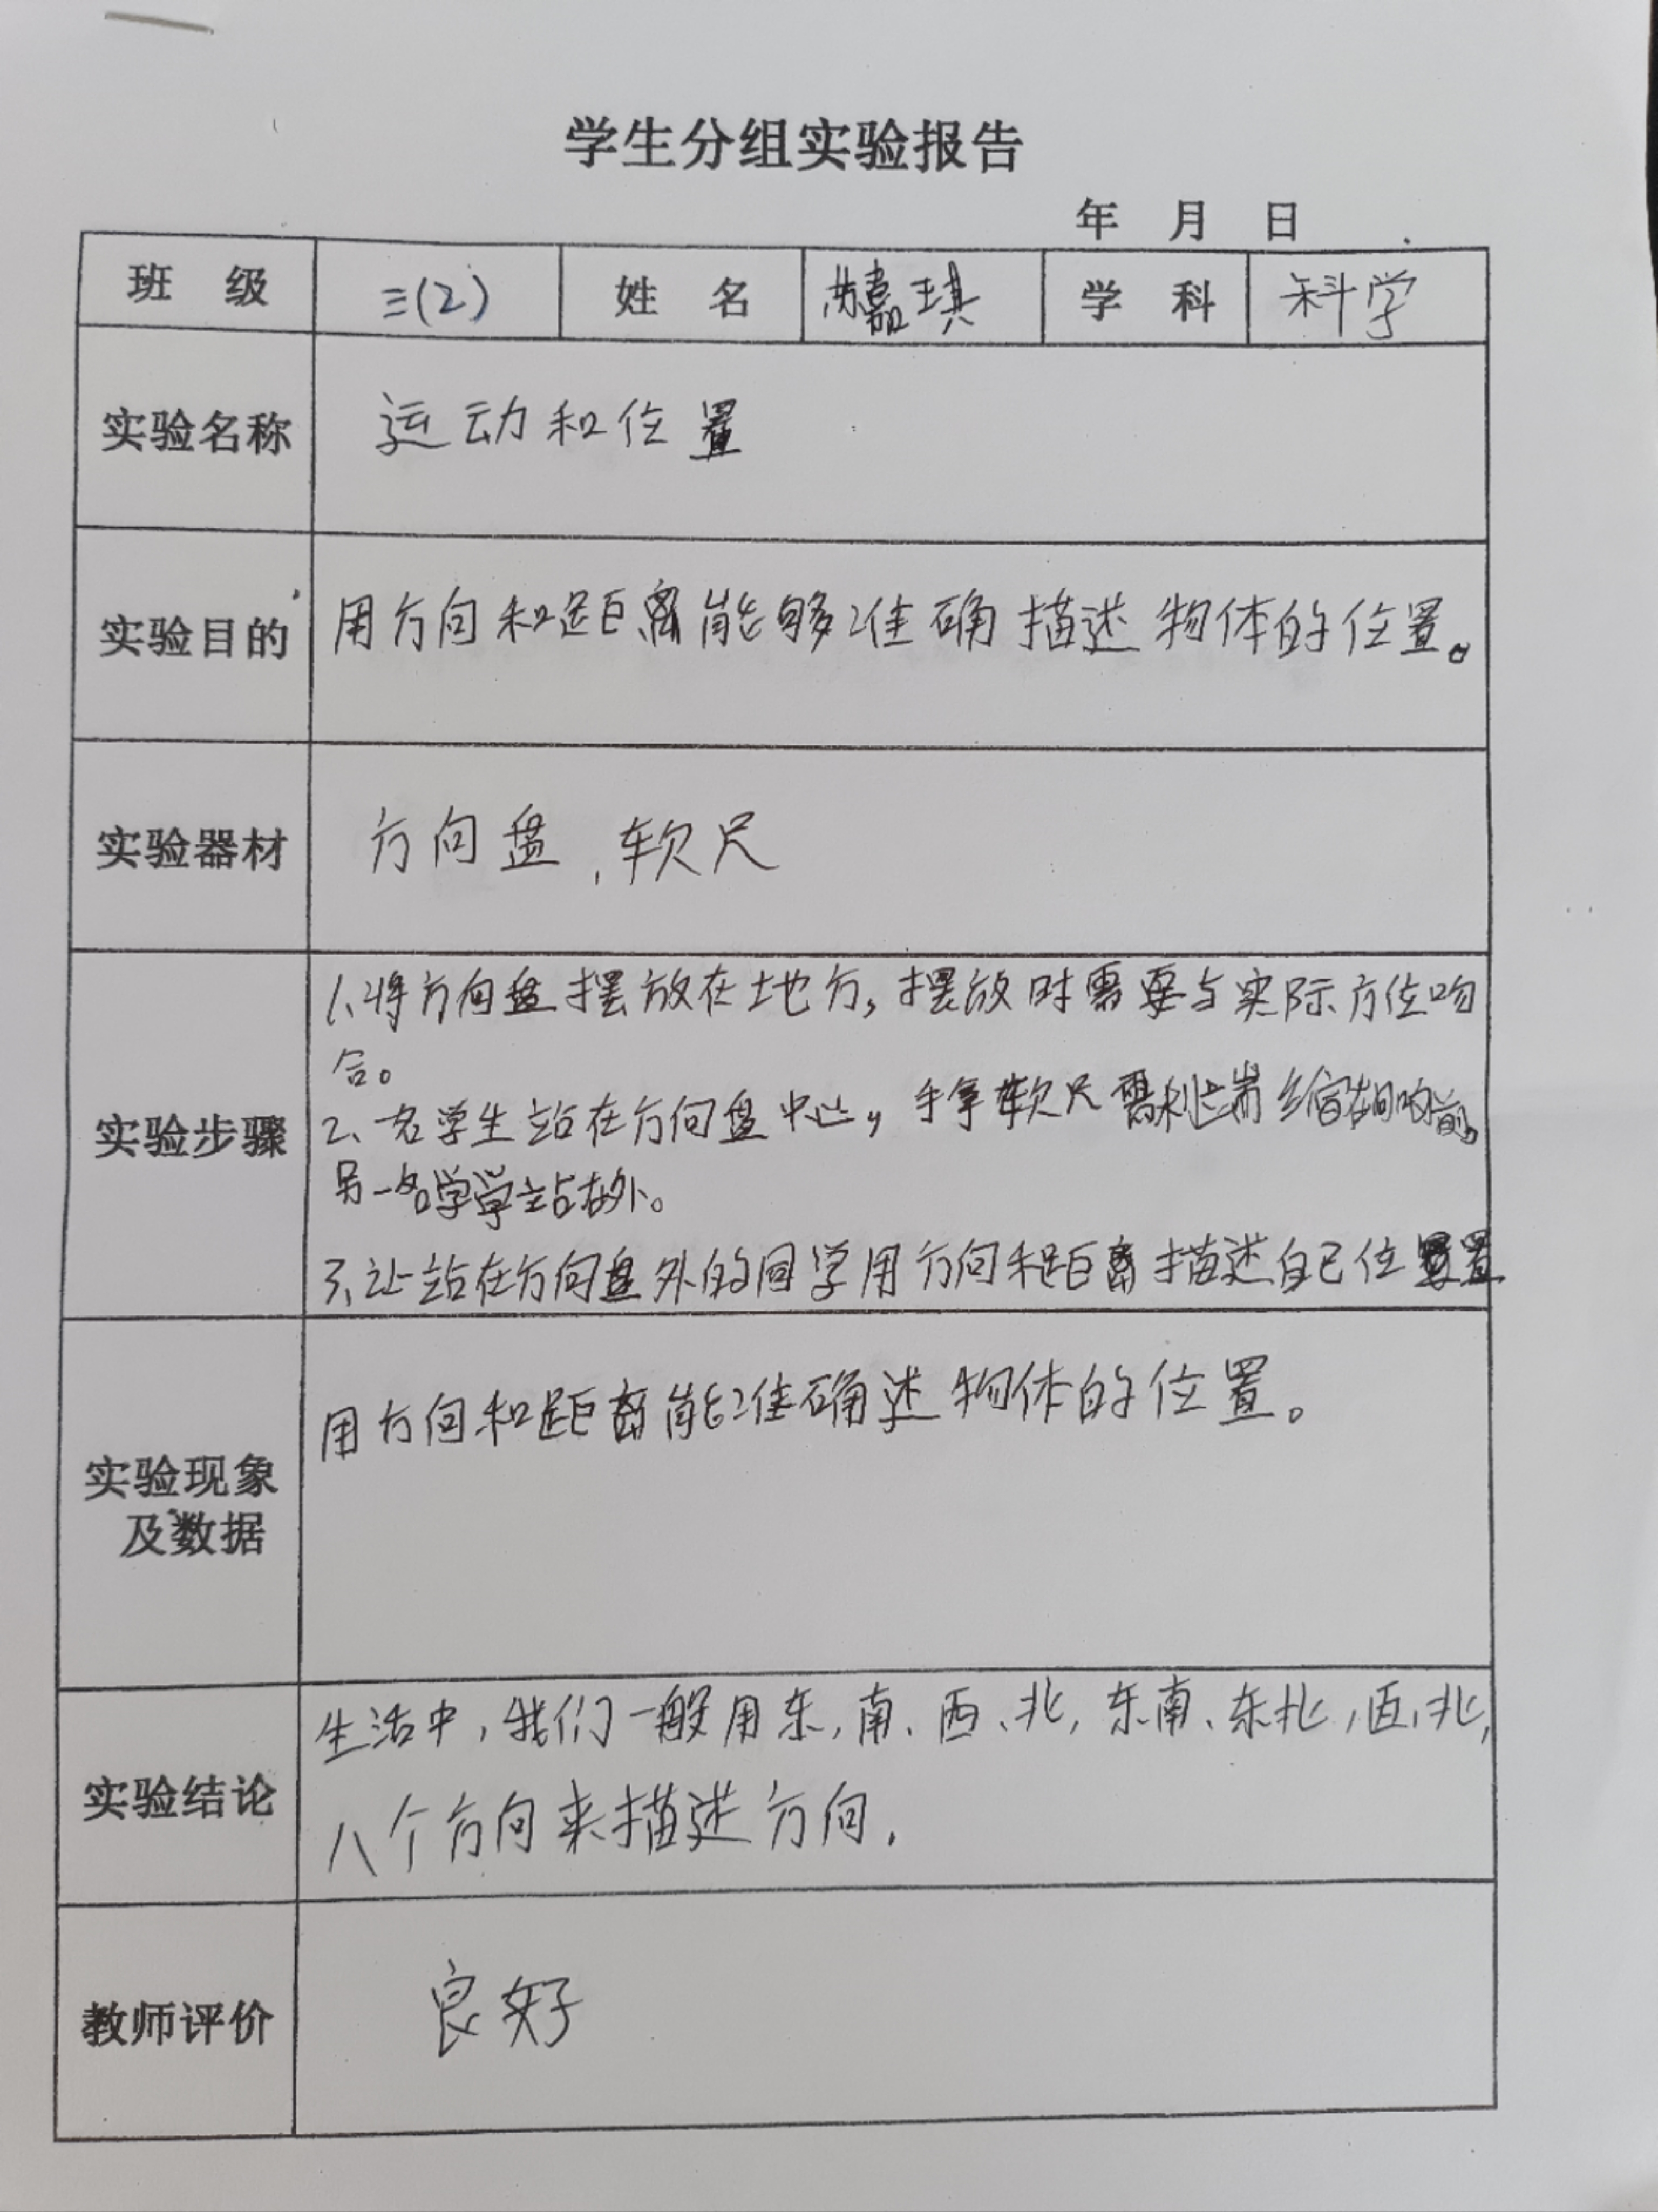 学生分组实验报告
年 月 日
班 级 三(2) 姓 名 嘉琪 学 科 科学
实验名称 运动和位置
实验目的 用方向和距离能够准确描述物体的位置。
实验器材 方向盘,软尺
实验步骤
1、将方向盘摆放在地方,摆放时需要与实际方位吻
合。
2、名学生站在方向盘中心,手拿软尺
另一名学学站在外。
3、让站在方向盘外的同学用方向和距离描述自己位置
实验现象
及数据
用方向和距离能准确述物体的位置。
实验结论
生活中,我们一般用东,南、西、北,东南、东北,西,北,
八个方向来描述方向.
教师评价 良好